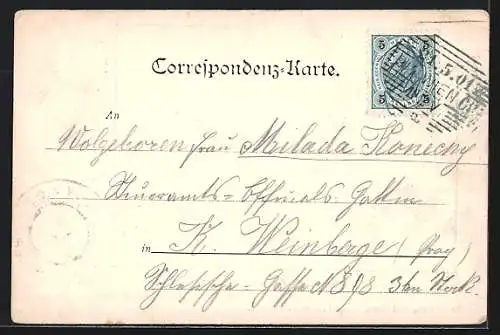 5 5
5.01
WIEN
Correspondenz-Karte.
An
Wolgeboren Frau Milada Konecny
Steueramts-Officials-Gattin
in K. Weinberge (Prag)
Schlesische-Gasse N 898 3ten Stock.